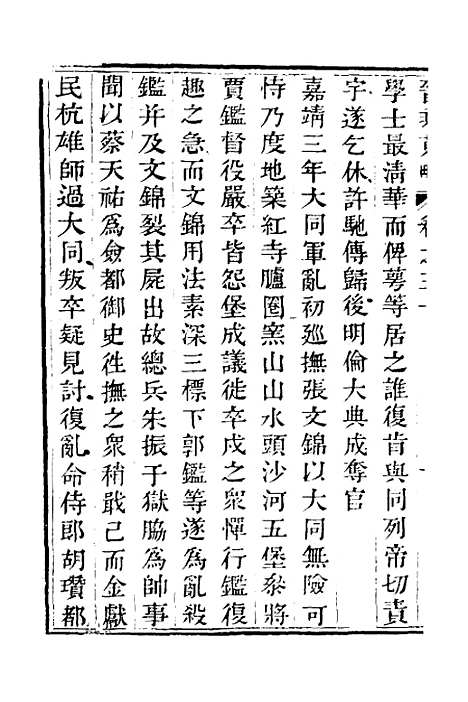 學士最清華而俾萼等居之誰復肯與同列帝切責
宇遂乞休許馳傳歸後明倫大典成奪官
嘉靖三年大同軍亂初廵撫張文錦以大同無險可
恃乃度地築紅寺臚圈窯山山水頭沙河五堡叅將
賈鑑督役嚴卒皆怨堡成議徙卒戍之衆憚行鑑復
趣之急而文錦用法素深三標下郭鑑等遂爲亂殺
鑑并及文錦裂其屍出故總兵朱振于獄脇爲帥事
聞以蔡天祐爲僉都御史徃撫之衆稍戢已而金獻
民杭雄師過大同叛卒疑見討復亂命侍郎胡瓚都